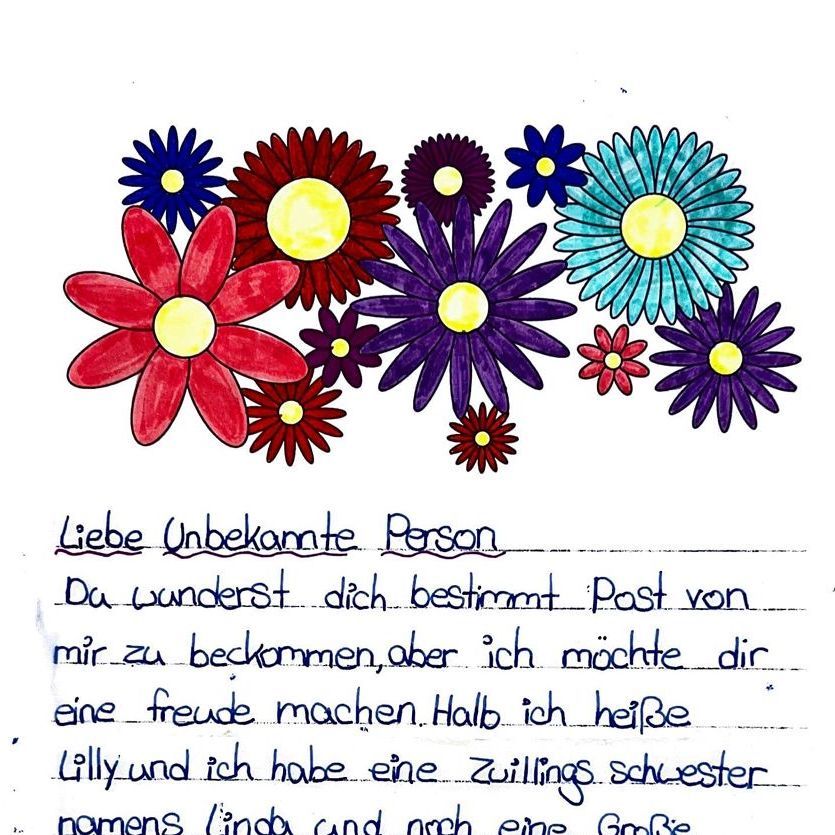 Liebe Unbekannte Person
Du wunderst dich bestimmt Post von
mir zu beckommen, aber ich möchte dir
eine freude machen. Halb ich heiße
Lilly und ich habe eine Zwillings schwester
namens Linda und noch eine Große